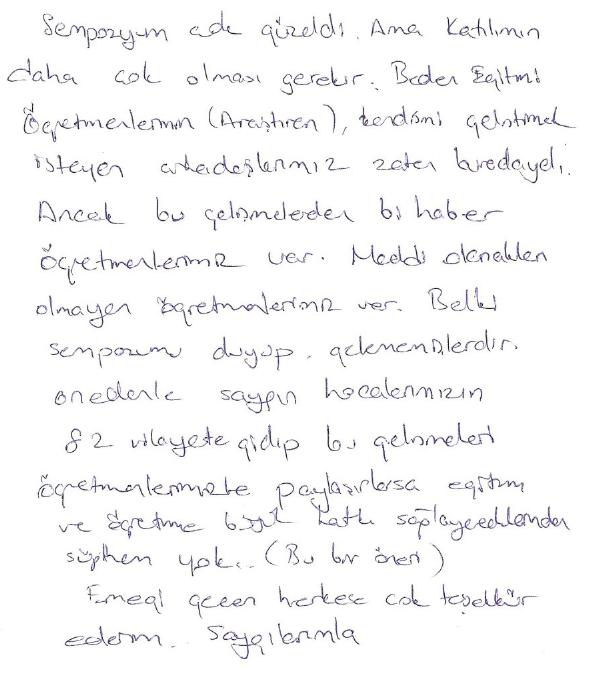 Sempozyum çok güzeldi. Ama Katılımın
daha çok olması gerekir. Beden Eğitimi
Öğretmenlerinin (Araştıran), kendisini geliştirmek
isteyen arkadaşlarımız zaten buradaydı.
Ancak bu gelişmelerden bi haber
öğretmenlerimiz var. Maddi olanakları
olmayan öğretmenlerimiz var. Belki
sempozumu duyup. gelememişlerdir.
onedenle saygın hocalarımızın
82 vilayete gidip bu gelişmeleri
öğretmenlerimizle paylaşırlarsa eğitim
ve öğretime büyük katkı sağlayacaklarından
şüphem yok.. (Bu bir öneri)
Emeği geçen herkese çok teşekkür
ederim.. Saygılarımla